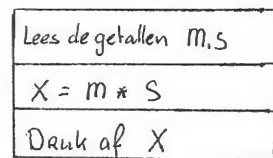 Lees de getallen m,s
X = m * S
Druk af X